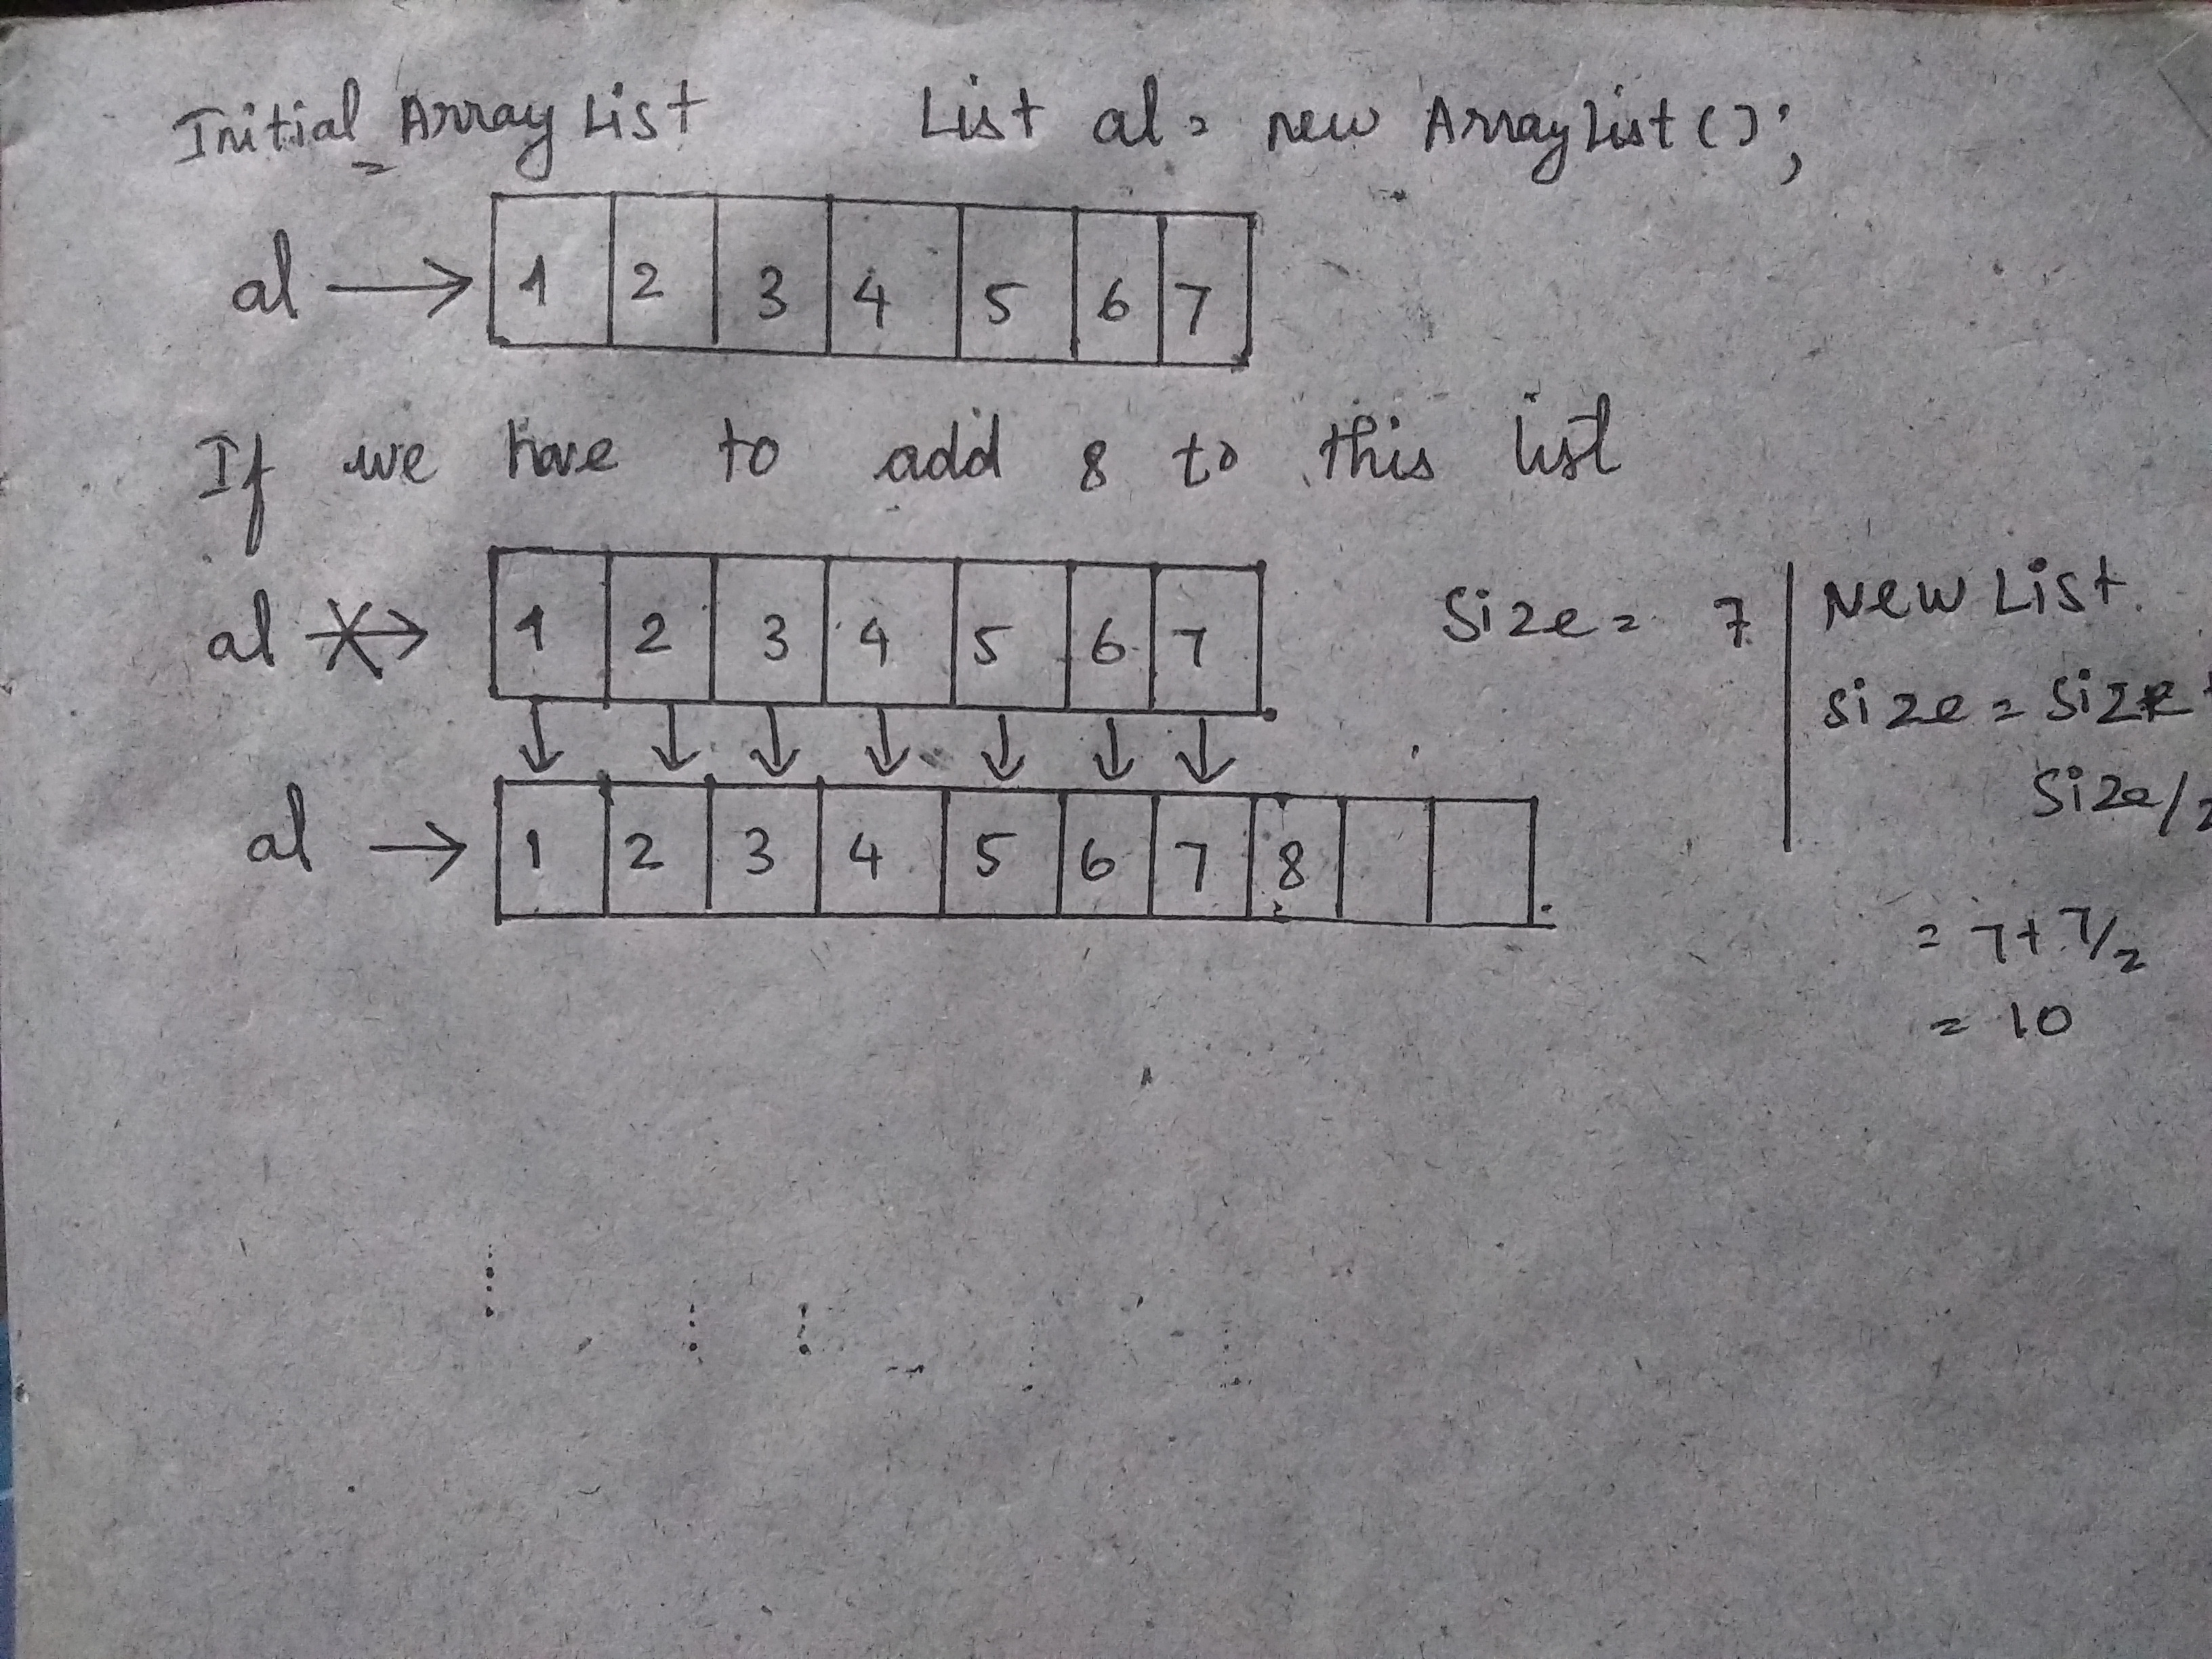 Initial ArrayList List al = new ArrayList();
al → 1 2 3 4 5 6 7
If we have to add 8 to this list
al → 1 2 3 4 5 6 7 Size = 7 New List.
size = size +
size/2
al → 1 2 3 4 5 6 7 8
= 7+7/2
= 10